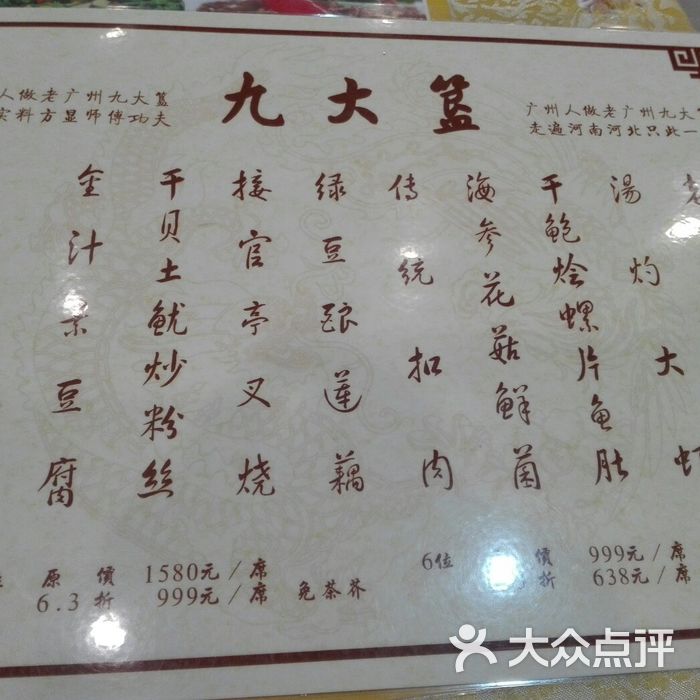 九大簋
人做老广州九大簋
实料方显师傅功夫
广州人做老广州九大
走遍河南河北只此一
汤灼大虾
干鲍烩螺片鱼肚
海参花菇鲜菌
传统扣肉
绿豆酿莲藕
接官亭叉烧
干贝土鱿炒粉丝
金汁素豆腐
原價 1580元/席
6.3折 999元/席 免茶芥
6位 價 999元/席
折 638元/席
大众点评